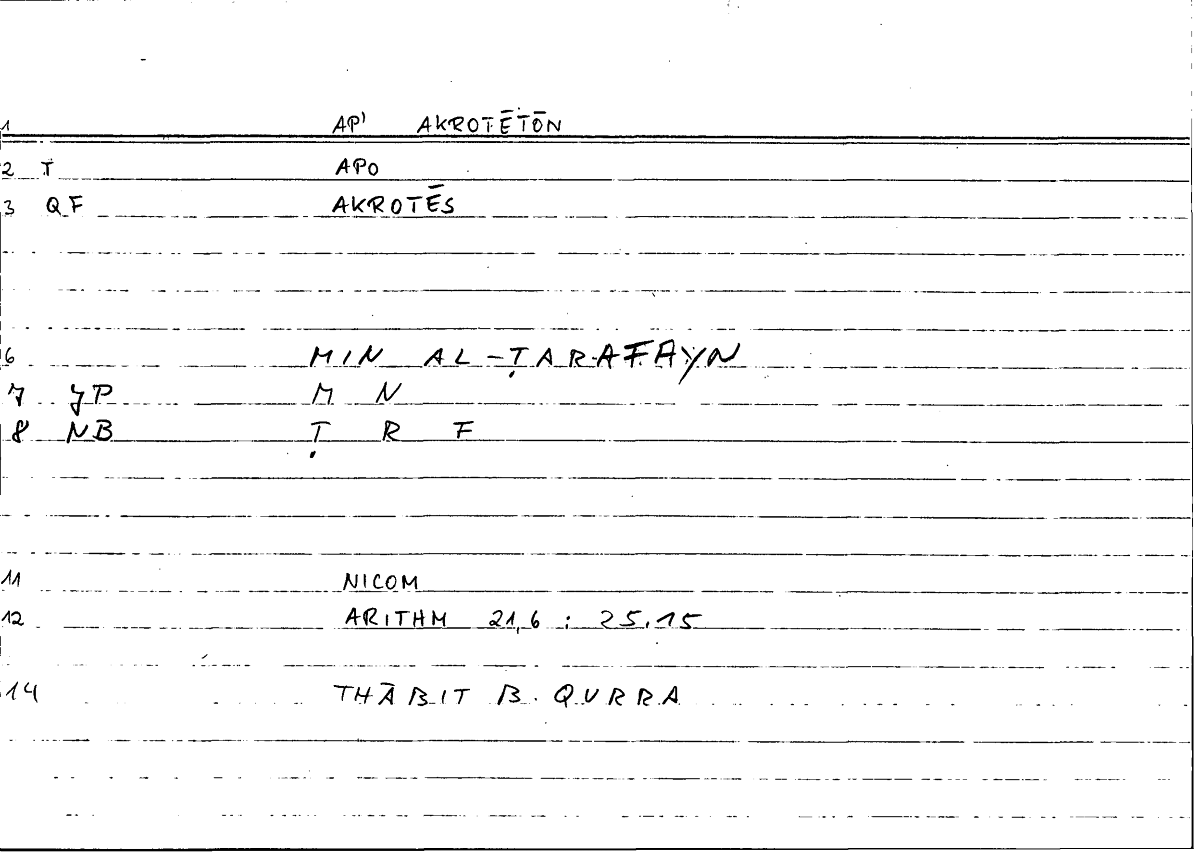 1 AP' AKROTĒTŌN
2 T APO
3 QF AKROTĒS
6 MIN AL-ṬARAFAYN
7 JP M N
8 NB Ṭ R F
11 NICOM
12 ARITHM 21,6 : 25,15
14 THĀBIT B. QURRA